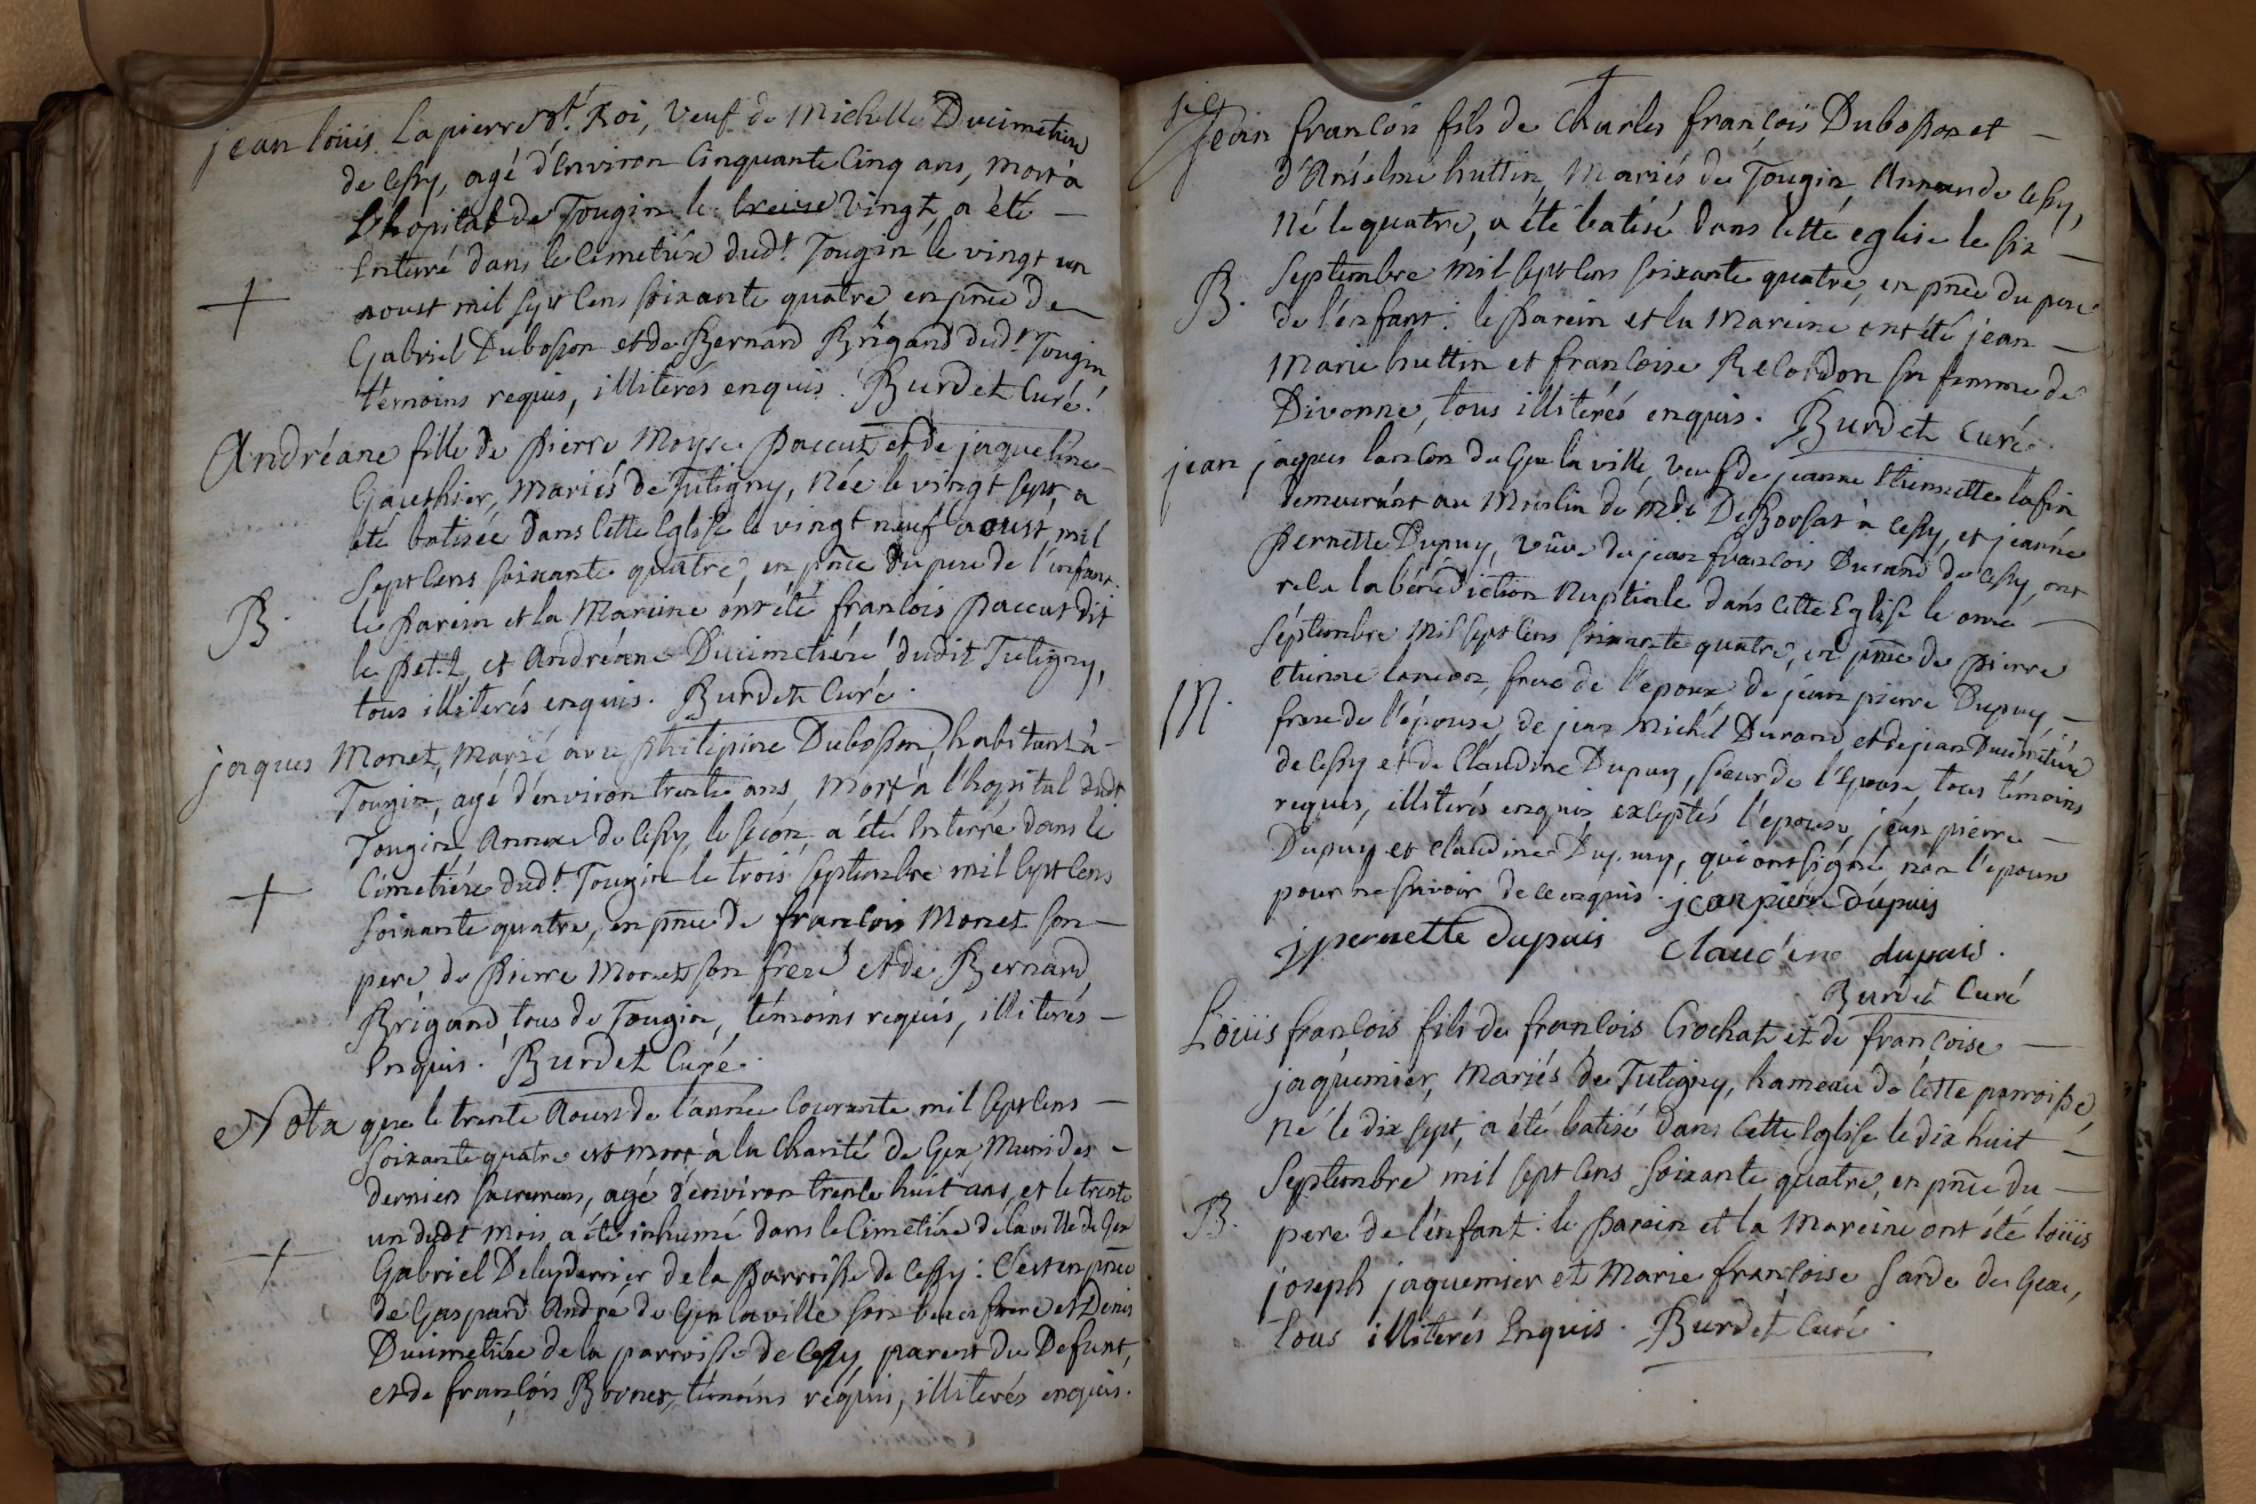 jean loüis Lapierre dt. Roi, veuf de Michelle Ducimetiere
de Cessy, agé d'environ cinquante cinq ans, mort à
L'hopital de Tougin le treize vingt, a été —
Enterré dans le cimetiére dudt. Tougin le vingt un
+
aoust mil sept cens soixante quatre, en pnce de
Gabriel Dubosson et de Bernard Brigand dudt Tougin
témoins requis, illiterés enquis. Burdet Curé.
Andréane fille de pierre Moyse paccut et de jaqueline
Gauthier, mariés de Tutigny, Née le vingt sept, a
été batisée dans cette Eglise le vingt neuf aoust mil
sept cens soixante quatre, en pnce du pere de l'enfant.
B.
le parein et la Mareine ont été francois paccut dit
le petit, et Andréane Ducimetiére dudit Tutigny,
tous illiterés enquis. Burdet Curé.
jaques Monet, Marié avec philipine Dubosson, habitant à
Tougin, agé d'environ trente ans, mort à l'hopital dudt
Tougin Annexe de Cessy, le secon, a été Enterré dans le
+
Cimetiére dudt. Tougin le trois septembre mil sept cens
soixante quatre, en pnce de francois Monet son —
pere de pierre Monet son frere et de Bernard
Brigand tous de Tougin, témoins requis, illiterés —
Enquis. Burdet Curé.
Nota que le trente Aoust de l'année courante mil sept cens —
soixante quatre est mort à la Charité de Gex, Muni des —
derniers sacremens, agé d'environ trente huit ans, et le trente
un dudt mois a été inhumé dans le Cimetiére de la ville de Gex
+
Gabriel Deluydernier de la parroisse de Cessy: C'est en pnce
de Gaspard André de Gex la ville son beau frere et Denis
Ducimetiére de la parroisse de Cessy, parent du Defunt,
et de francois témoins requis, illiterés enquis.
+
Jean francois fils de Charles francois Dubosson et —
d'Anselme huttin, Mariés de Tougin, Annexe de Cessy,
Né le quatre, a été batisé dans cette eglise le six —
septembre mil sept cens soixante quatre, en pnce du pere
B.
de l'enfant: le parein et la Mareine ont été jean —
Marie huttin et francoise Recordon sa femme de
Divonne, tous illiterés enquis. Burdet Curé.
jean jaques lancon de Gex la ville, veuf de jeanne Etiennette lafin
demeurant au Moulin de Mde. DeBorsat à Cessy, et jeanne
pernette Dupuy, vüve de jean francois Durand de Cessy, ont
recu la bénédiction Nuptiale dans cette Eglise le onze —
séptembre mil sept cens soixante quatre, en pnce de pierre
Etienne lancon, frere de l'epoux, de jean pierre Dupuy —
M.
frere de l'épouse, de jean Michel Durand, et de jean Ducimetiére
de Cessy et de Claudine Dupuy, soeur de l'Epouse, tous témoins
requis, illiterés enquis, exceptés l'epouse, jean pierre —
Dupuy et Claudine Dupuy, qui ont signé non l'epoux
pour ne savoir de ce enquis. jean pierre dupuis
jpernette dupuis Claudine dupuis.
Burdet Curé
Loüis francois fils de francois Crochat et de francoise —
jaquemier, Mariés de Tutigny, hameau de cette parroisse,
Né le dix sept, a été batisé dans cette Eglise le dix huit —
septembre mil sept cens soixante quatre, en pnce du —
B.
pere de l'enfant: le parein et la Mareine ont été loüis
joseph jaquemier et Marie francoise Sarde de Gex,
tous illiterés Enquis. Burdet Curé.